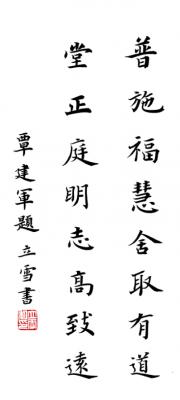 普施福慧舍取有道
堂正庭明志高致遠
覃建軍題 立雪書